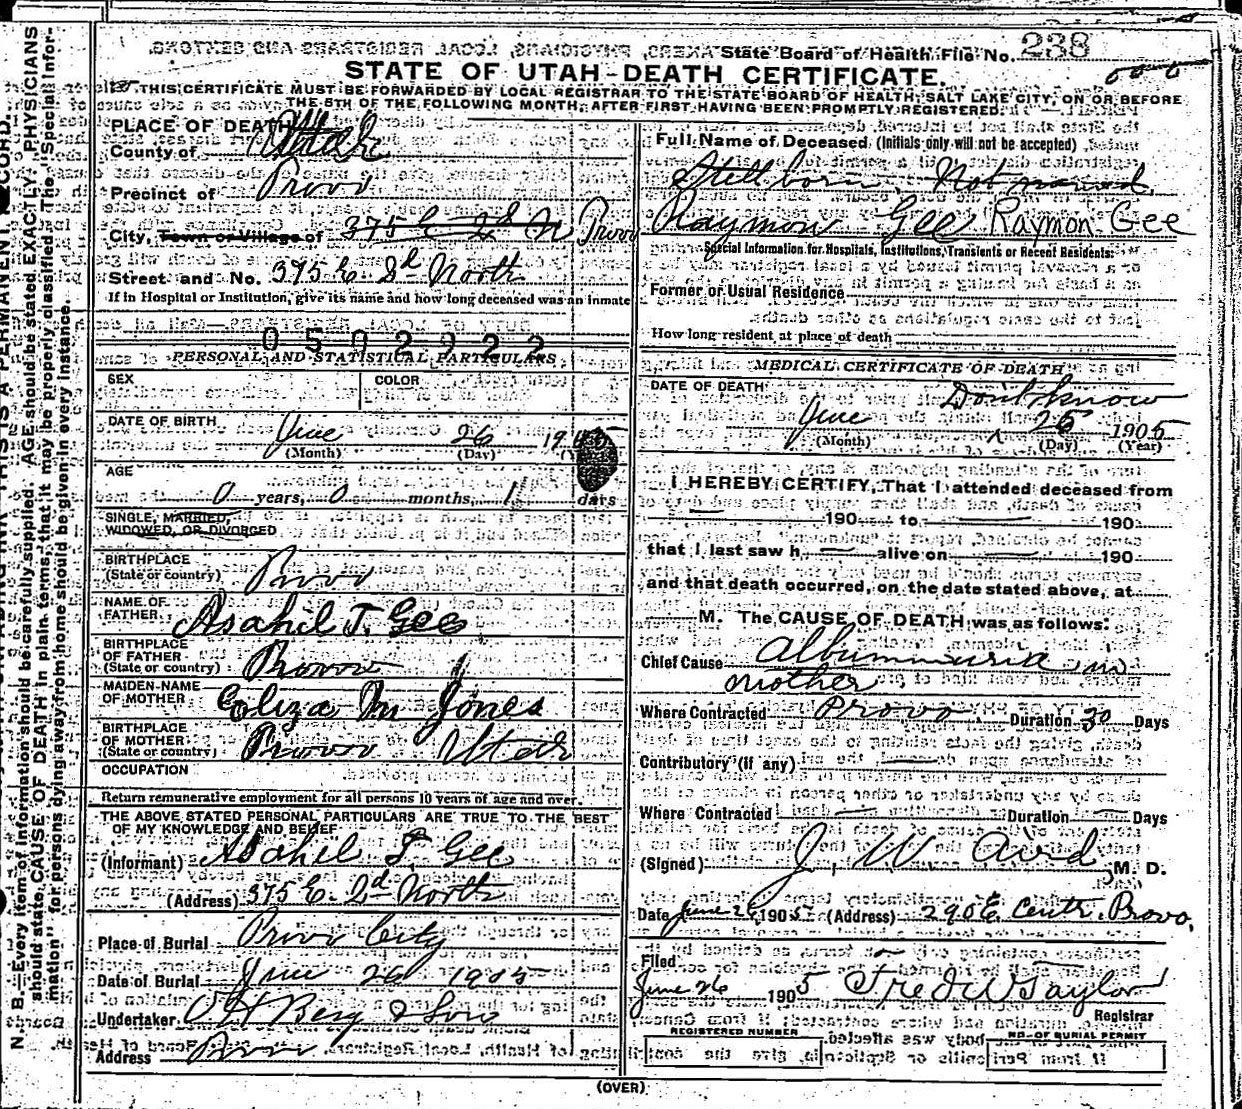 State Board of Health File No. 238
STATE OF UTAH-DEATH CERTIFICATE.
THIS CERTIFICATE MUST BE FORWARDED BY LOCAL REGISTRAR TO THE STATE BOARD OF HEALTH, SALT LAKE CITY, ON OR BEFORE
THE 5TH OF THE FOLLOWING MONTH, AFTER FIRST HAVING BEEN PROMPTLY REGISTERED.
PLACE OF DEATH
County of Utah
Precinct of Provo
City, Town or Village of 375 E 2d N Provo
Street and No. 375 E. 2d North
If in Hospital or Institution, give its name and how long deceased was an inmate
0502922
PERSONAL AND STATISTICAL PARTICULARS
SEX
COLOR
DATE OF BIRTH June 26 1905
(Month) (Day)
AGE
0 years, 0 months, 1 days
SINGLE, MARRIED,
WIDOWED, OR DIVORCED
BIRTHPLACE
(State or country) Provo
NAME OF
FATHER Asahil T. Gee
BIRTHPLACE
OF FATHER
(State or country) Provo
MAIDEN NAME
OF MOTHER Eliza M Jones
BIRTHPLACE
OF MOTHER
(State or country) Provo Utah
OCCUPATION
Return remunerative employment for all persons 10 years of age and over.
THE ABOVE STATED PERSONAL PARTICULARS ARE TRUE TO THE BEST
OF MY KNOWLEDGE AND BELIEF
(Informant) Asahil T. Gee
(Address) 375 E. 2d North
Place of Burial Provo City
Date of Burial June 26 1905
Undertaker O H Berg & Son
Address Provo
Full Name of Deceased (Initials only will not be accepted)
Stillborn, Not named.
Raymon Gee Raymon Gee
Special Information for Hospitals, Institutions, Transients or Recent Residents:
Former or Usual Residence
How long resident at place of death
MEDICAL CERTIFICATE OF DEATH
DATE OF DEATH Don't know
June 26 1905
(Month) (Day) (Year)
I HEREBY CERTIFY, That I attended deceased from
190 to 190
that I last saw h alive on 190
and that death occurred, on the date stated above, at
M. The CAUSE OF DEATH was as follows:
Chief Cause Albuminuria in
mother
Where Contracted Provo Duration 30 Days
Contributory (if any)
Where Contracted Duration Days
(Signed) J. W. Aird M. D.
Date June 26, 1905 (Address) 290 E. Centr. Provo,
Filed
June 26 1905 Fred W Taylor
Registrar
REGISTERED NUMBER
NO. OF BURIAL PERMIT
(OVER)
N. B.—Every item of information should be carefully supplied. AGE should be stated EXACTLY. PHYSICIANS
should state CAUSE OF DEATH in plain terms, that it may be properly classified. The "Special Infor-
mation" for persons dying away from home should be given in every instance.